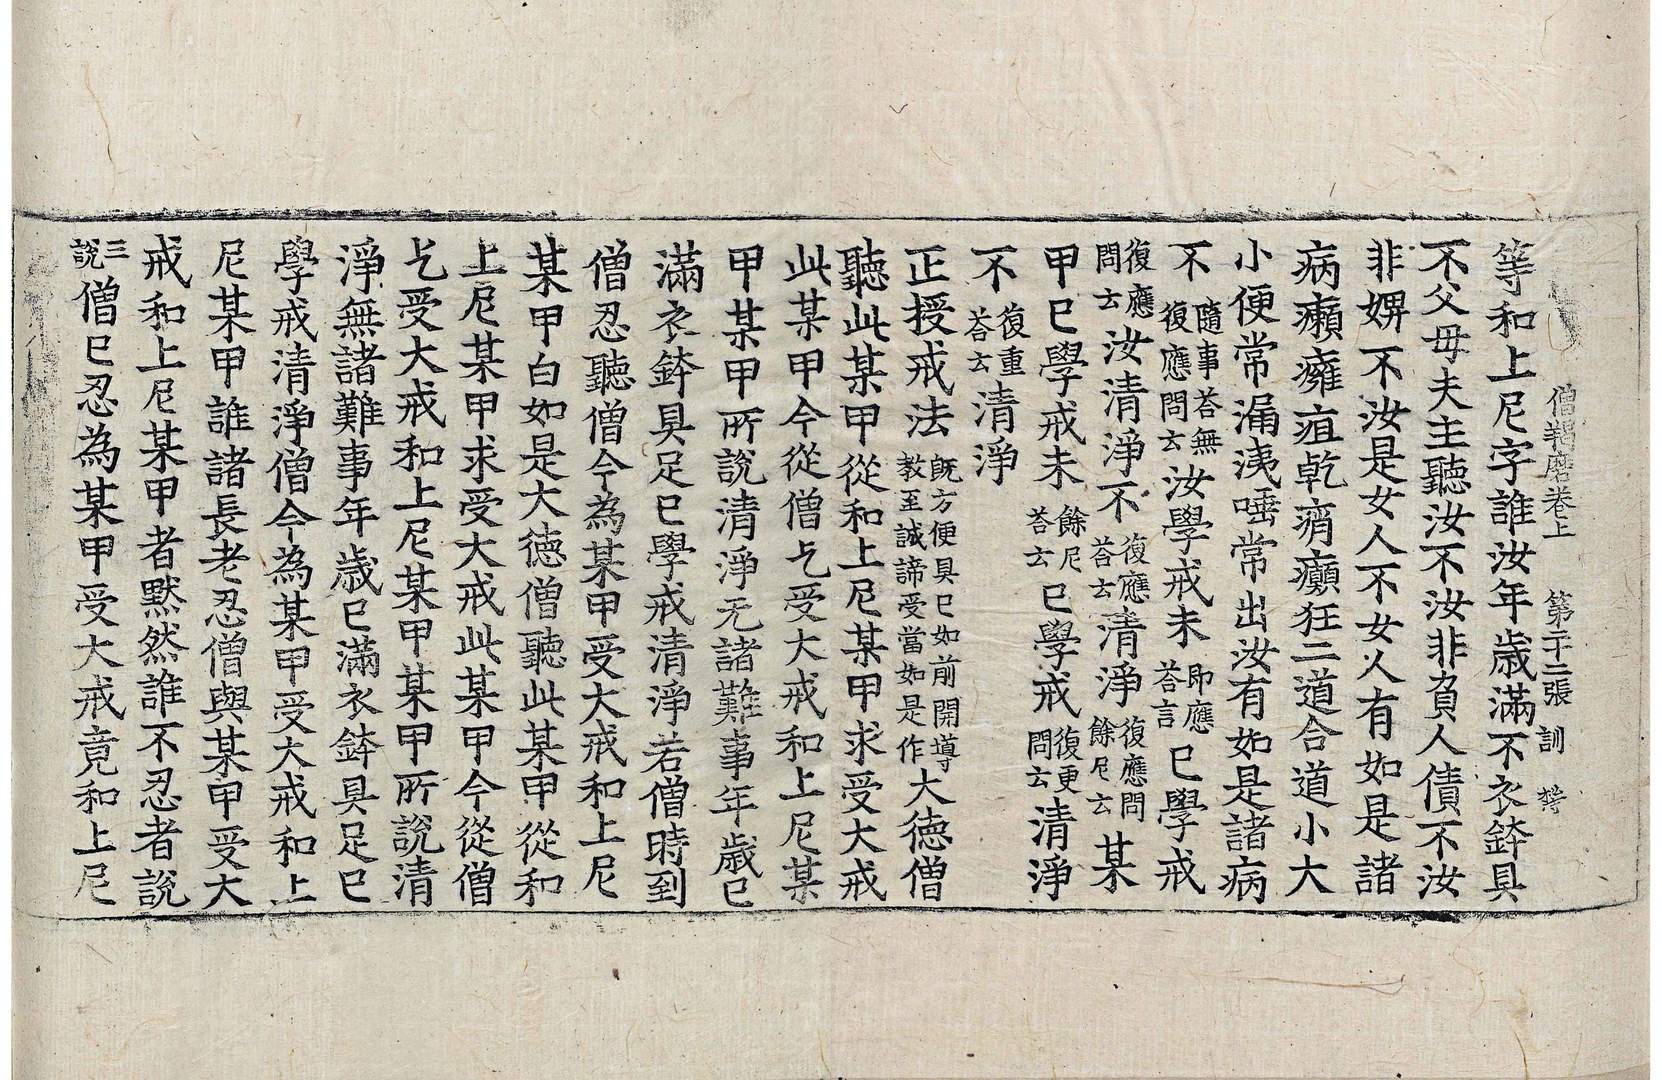 僧羯磨卷上 第二十二張 訓
等和上尼字誰汝年歲滿不衣鉢具
不父母夫主聽汝不汝非負人債不汝
非婢不汝是女人不女人有如是諸
病癩癰疽乾痟癲狂二道合道小大
小便常漏洟唾常出汝有如是諸病
不隨事荅無復應問云汝學戒未即應荅言已學戒
復應問云汝清淨不復應荅云清淨復應問餘尼云某
甲已學戒未餘尼荅云已學戒復更問云清淨
不復重荅云清淨
正授戒法既方便具已如前開導教至誠諦受當如是作大德僧
聽此某甲從和上尼某甲求受大戒
此某甲今從僧乞受大戒和上尼某
甲某甲所說清淨无諸難事年歲已
滿衣鉢具足已學戒清淨若僧時到
僧忍聽僧今為某甲受大戒和上尼
某甲白如是大德僧聽此某甲從和
上尼某甲求受大戒此某甲今從僧
乞受大戒和上尼某甲某甲所說清
淨無諸難事年歲已滿衣鉢具足已
學戒清淨僧今為某甲受大戒和上
尼某甲誰諸長老忍僧與某甲受大
戒和上尼某甲者默然誰不忍者說
三說僧已忍為某甲受大戒竟和上尼